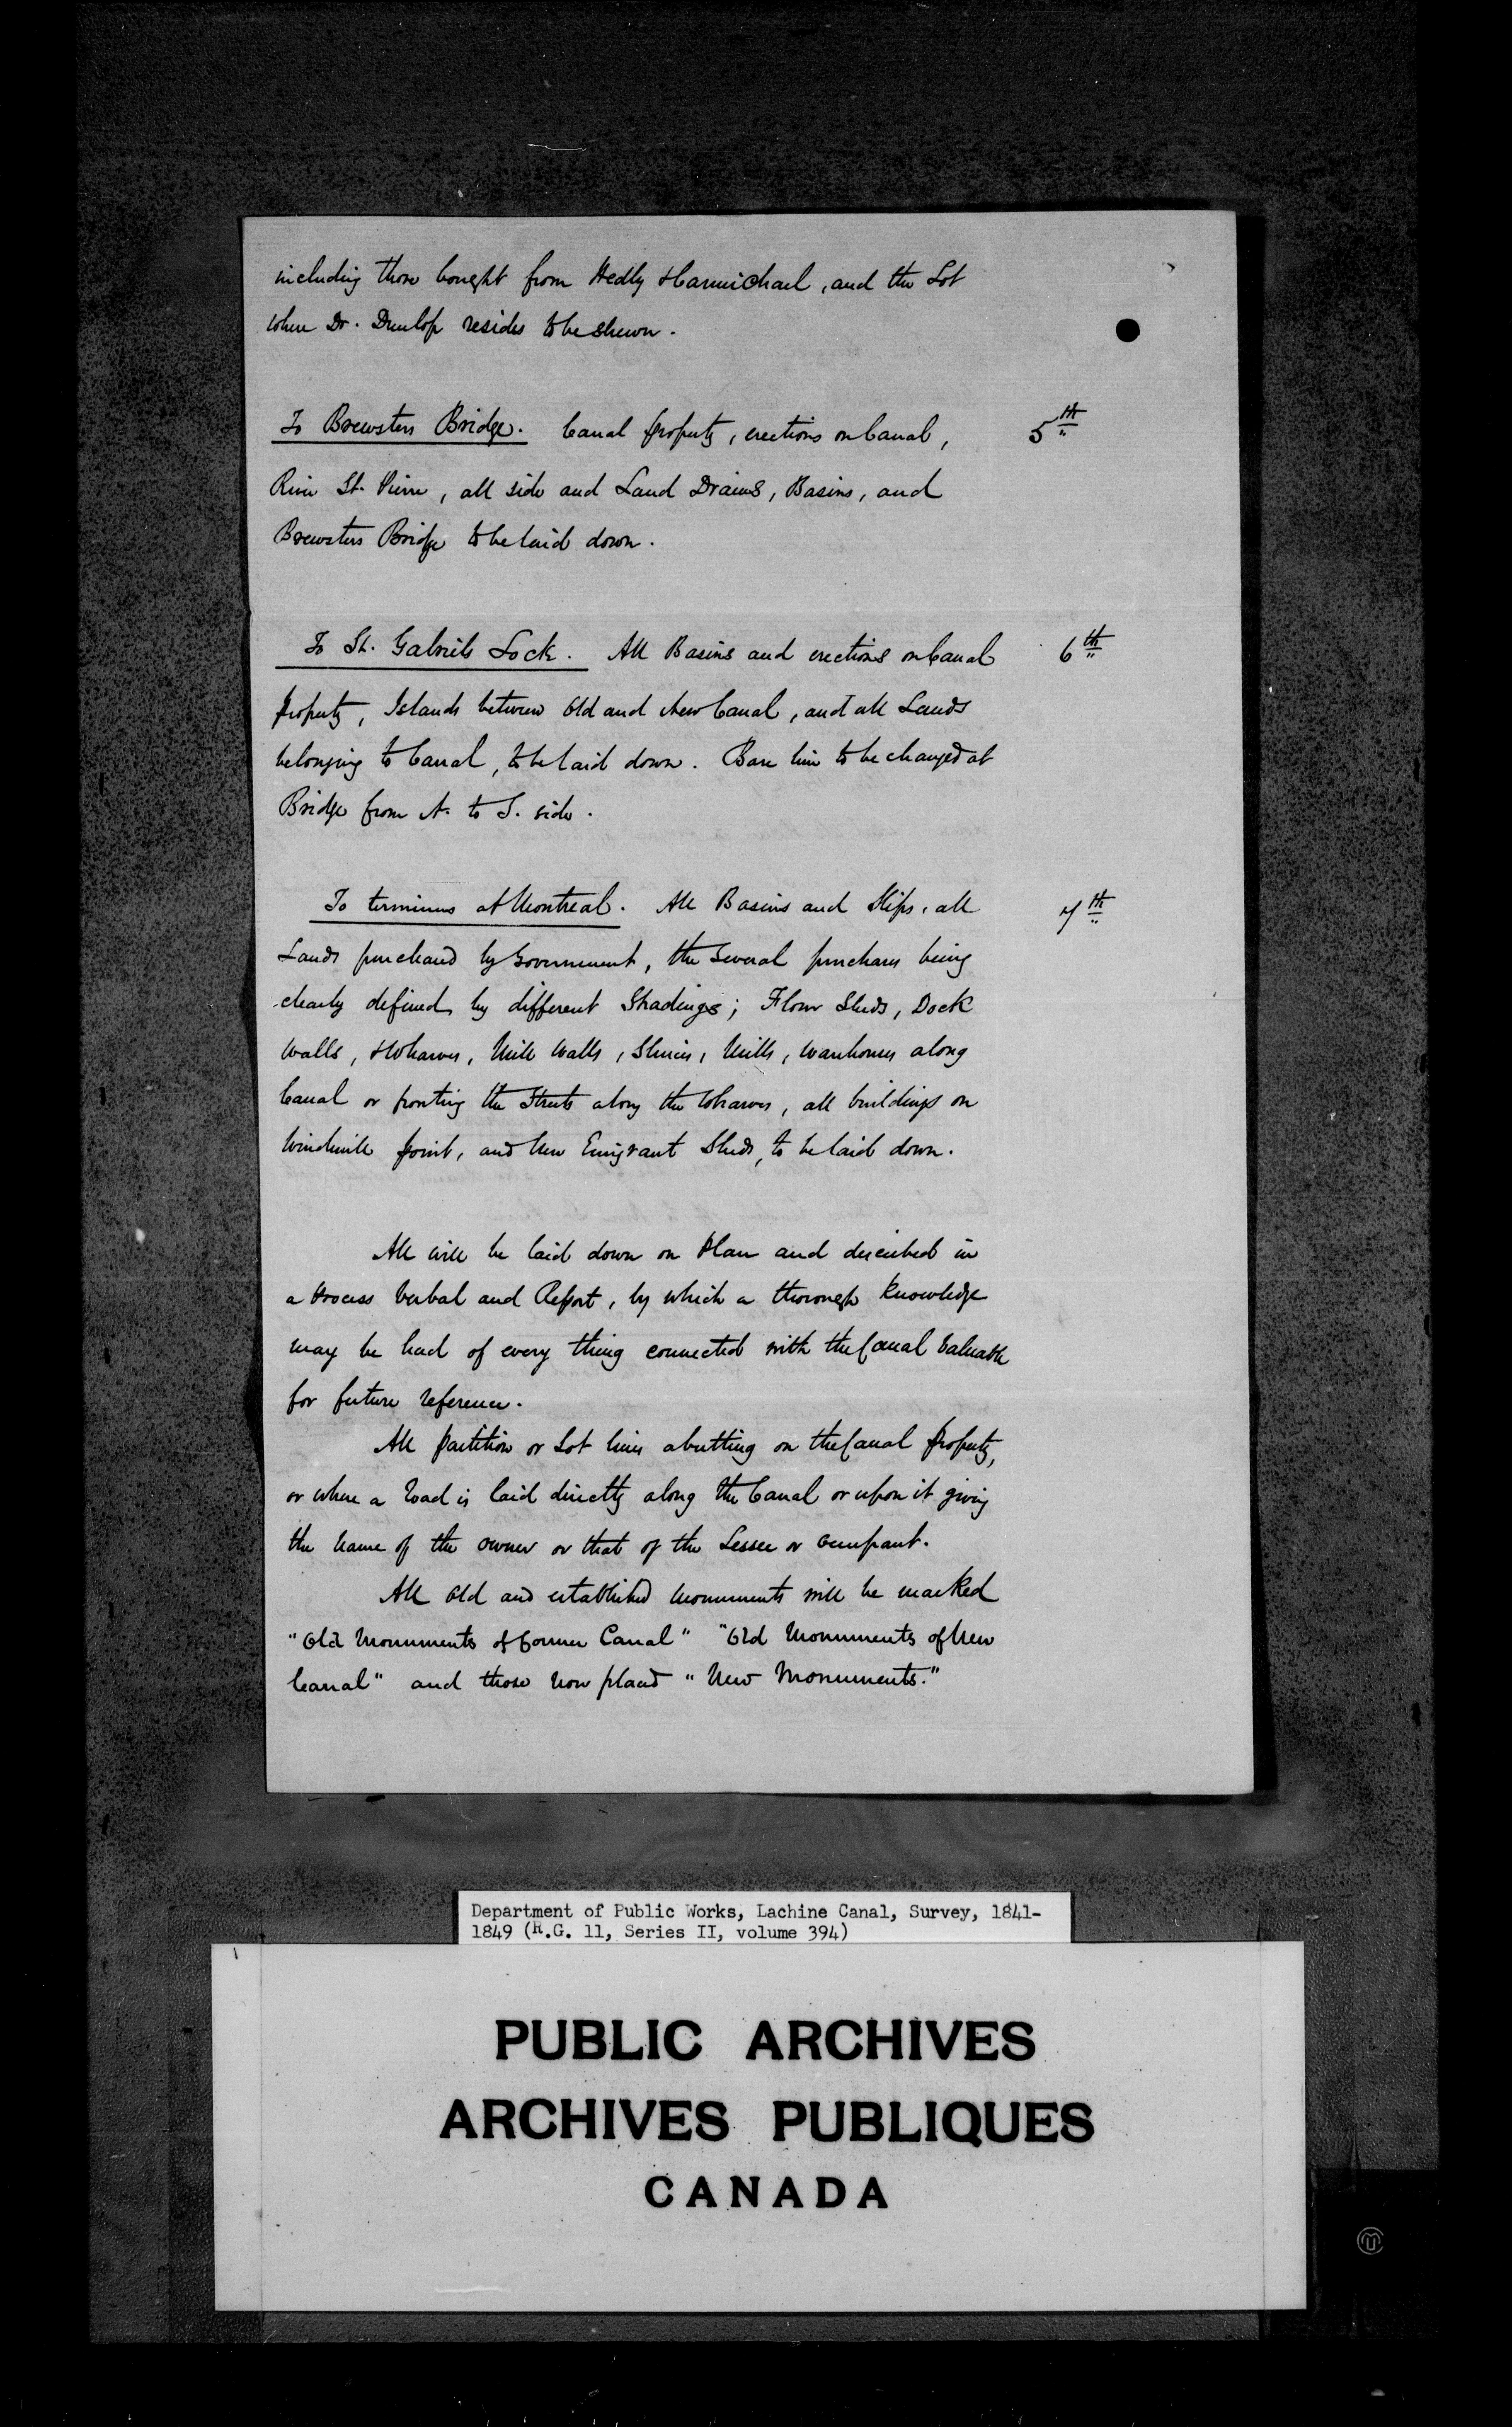 including those bought from Hedly & Carmichael, and the Lot
where Dr. Dunlop resides to be shewn.
To Brewsters Bridge. Canal property, erections on Canal, 5th
River St. Pierre, all side and Land Drains, Basins, and
Brewsters Bridge to be laid down.
To St. Gabriels Lock. All Basins and erections on Canal 6th
property, Islands between Old and New Canal, and all Lands
belonging to Canal, to be laid down. Base line to be changed at
Bridge from N. to S. side.
To terminus at Montreal. All Basins and Slips, all 7th
Lands purchased by Government, the several purchases being
clearly defined by different Shadings; Flour Sheds, Dock
Walls, Wharves, Mill Walls, Sluices, Mills, Warehouses along
Canal or fronting the Streets along the Wharves, all buildings on
Windmill point, and New Emigrant Sheds, to be laid down.
All will be laid down on Plan and described in
a Process Verbal and Report, by which a thorough knowledge
may be had of every thing connected with the Canal valuable
for future reference.
All partition or Lot lines abutting on the Canal property,
or where a road is laid directly along the Canal or upon it giving
the name of the owner or that of the Lessee or occupant.
All old and established monuments will be marked
"Old Monuments of former Canal" "Old Monuments of New
Canal" and those now placed "New Monuments."
Department of Public Works, Lachine Canal, Survey, 1841-
1849 (R.G. 11, Series II, volume 394)
PUBLIC ARCHIVES
ARCHIVES PUBLIQUES
CANADA